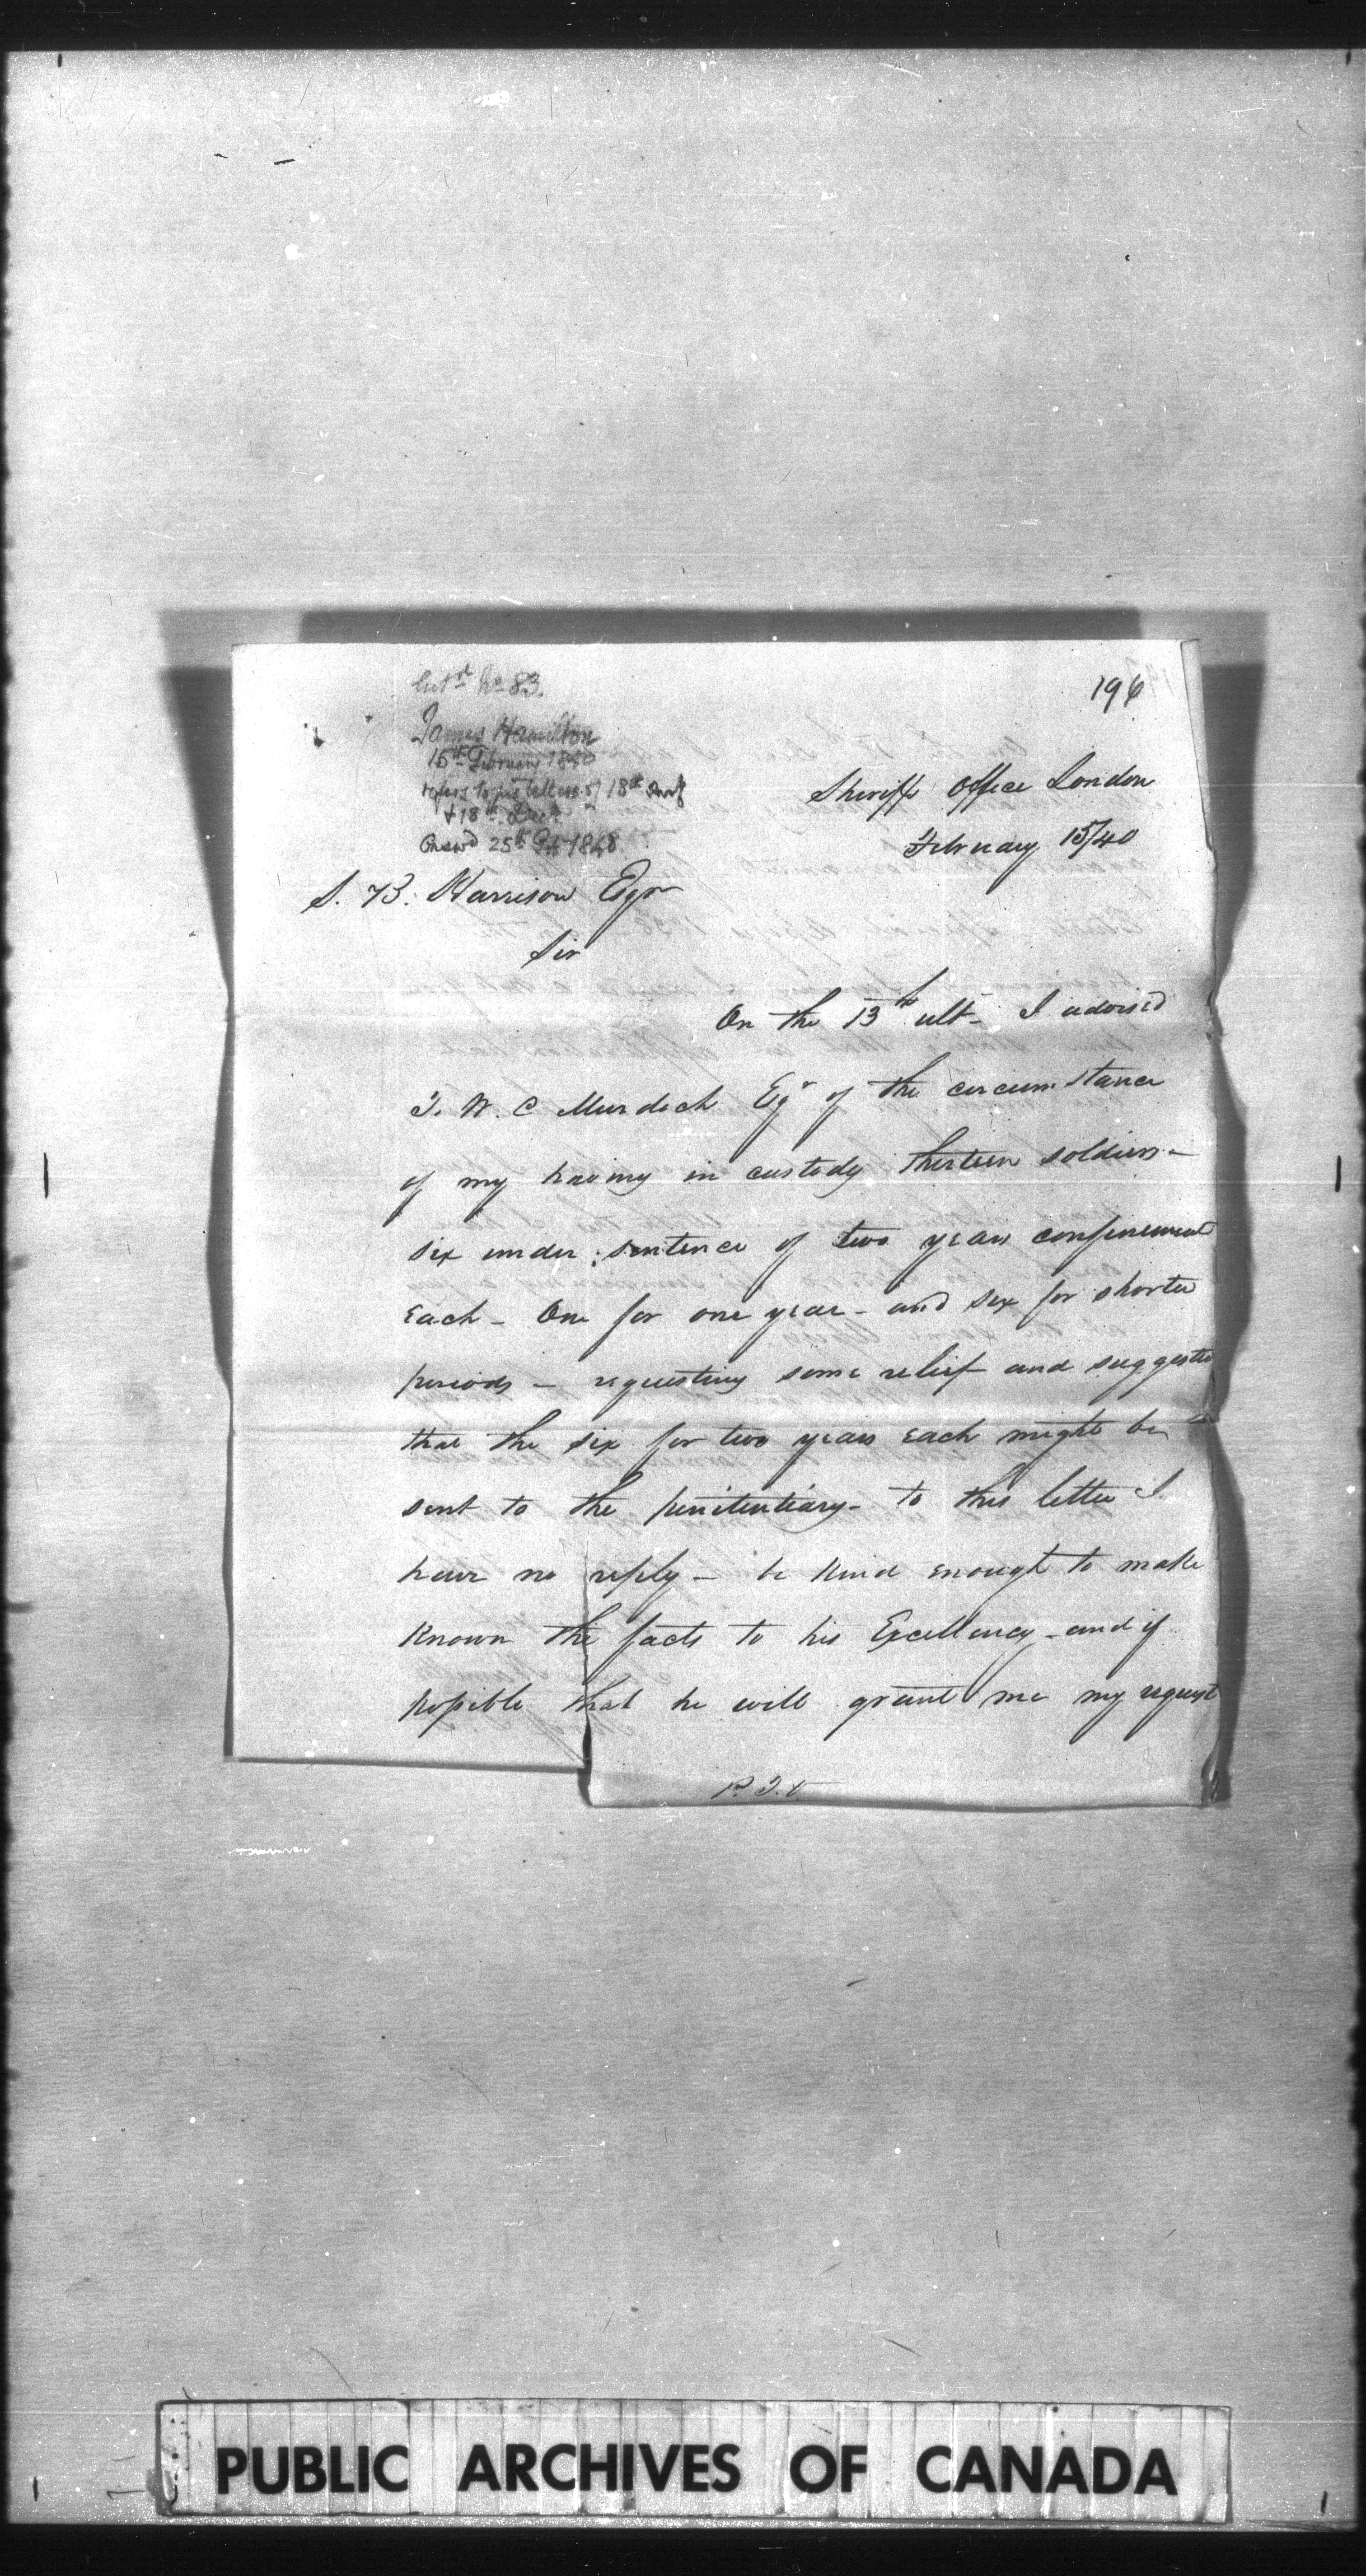 No 83.
James Hamilton
15th February 1840
refers to his letters of 18th
& 18th
Ansd 25th 1840
196
Sheriffs Office London
February 15/40
S. B. Harrison Esqr
Sir
On the 13th ult- I advised
T. W. C Murdoch Eqr of the circumstance
of my having in custody thirteen soldiers-
six under sentence of two years confinement
each - One for one year - and six for shorter
periods - requesting some relief and suggested
that the six for two years each might be
sent to the penitentiary- to this letter I
have no reply - be kind enough to make
known the facts to his Excellency - and if
possible that he will grant me my request
P. T. O
PUBLIC ARCHIVES OF CANADA